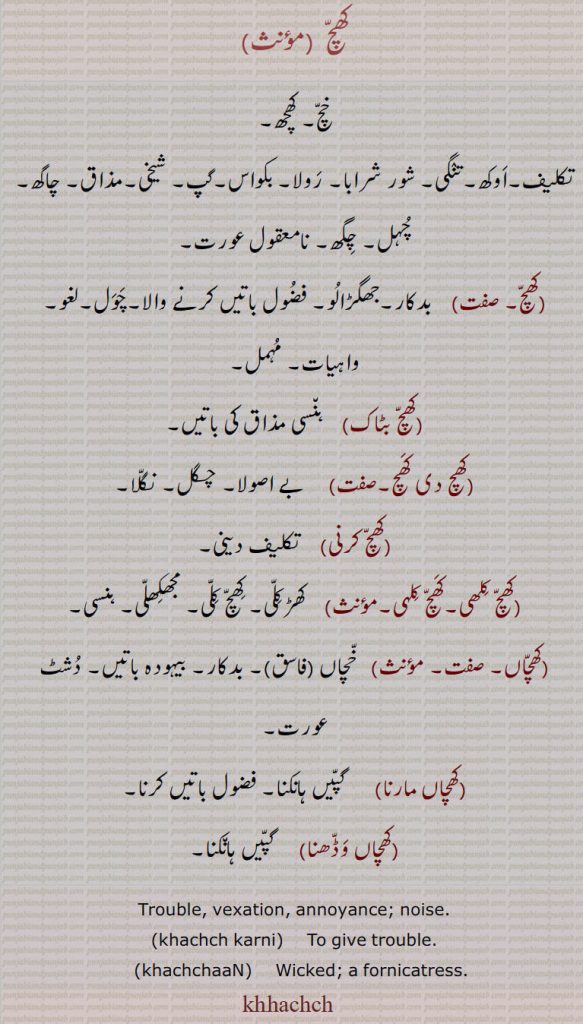 کھچّ (مؤنث)
خچّ۔ کھچھ۔
تکلیف۔اَوکھ۔تنگی۔ شور شرابا۔ رَولا۔ بکواس۔گپ۔ شیخی۔مذاق۔ چاگھ۔
چُہل۔ چِگھ۔ نامعقول عورت۔
(کھچّ۔ صفت) بدکار۔جھگڑالُو۔ فضُول باتیں کرنے والا۔چَوَل۔لغو۔
واہیات۔ مُہمل۔
(کھچّ بٹاک) ہنّسی مذاق کی باتیں۔
(کھچ دی کَھچ۔صفت) بے اصولا۔ چسگل۔ نگلّا۔
(کھچّ کرنی) تکلیف دینی۔
(کھچّ کِلھی۔کَھچّ کِلہی۔مؤنث) کھڑکِلّی۔ کِھچّ کِلّی۔ مجھکِھلّی۔ ہنسی۔
(کھچّاں۔ صفت۔ مؤنث) خّچاں (فاسق)۔ بدکار۔ بیہودہ باتیں۔ دُشٹ
عورت۔
(کھچاں مارنا) گپیّں ہانکنا۔ فضول باتیں کرنا۔
(کھچاں وَڈّھنا) گپیّں ہانّکنا۔
Trouble, vexation, annoyance; noise.
(khachch karni) To give trouble.
(khachchaaN) Wicked; a fornicatress.
khhachch